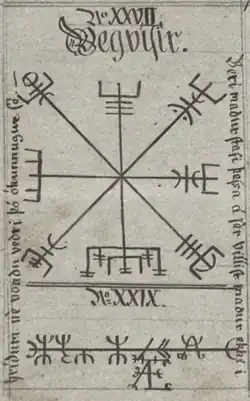 No XXVII.
Vegvísir.
Beri maður stafi þessa á sér villist maður ekki í
hríðum né vondu veðri þó ókunnugur sé.
No XXIX.